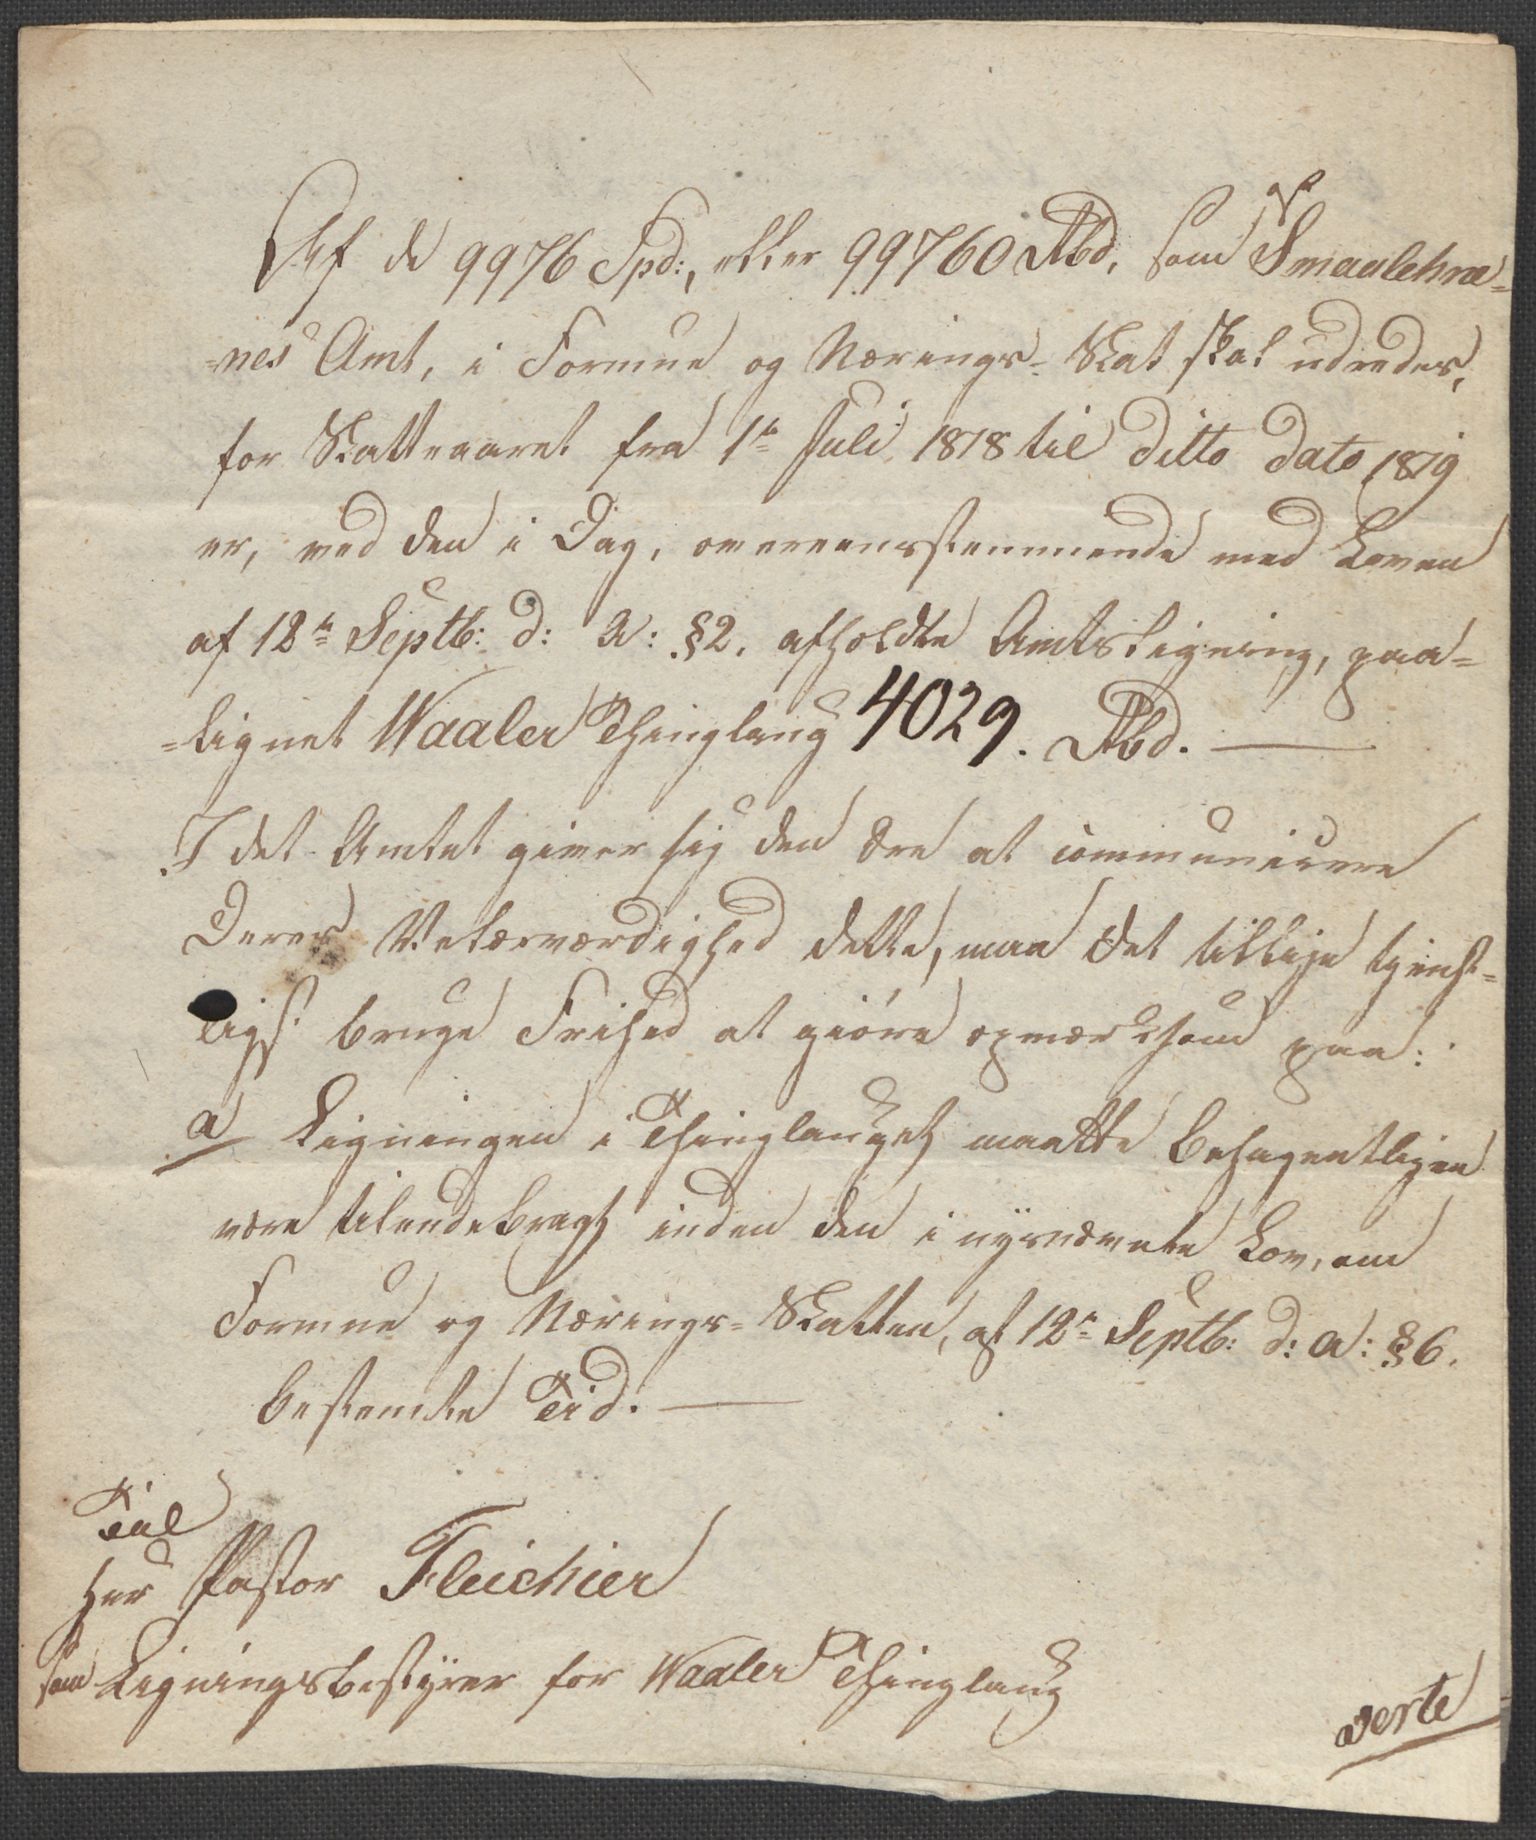 Af de 9976 Spd:, eller 99760 Rbd, som Smaalehne=
=nes Amt, i Formue og Nærings- Skat skal udredes,
for Skatteaaret fra 1te Juli 1818 til ditto dato 1819
er, ved den i Dag, overeensstemmende med Loven
af 12te Septb: d: A: §2. afholdte Amtsligning, paa=
=lignet Waaler Thinglaug 4029. Rbd.
I det Amtet giver sig den Ære at communicere
Deres Velærværdighed dette, maa det tillige tjenst=
ligst bruge Frihed at giøre opmærksom paa:
a/ Ligningen i Thinglauget maatte behagentligen
være tilendebragt inden den i nysnævnte Lov, om
Formue og Nærings- Skatten, af 12te Septb: d: A: §6.
bestemte Tid.
Til
Herr Pastor Fleichier
som Ligningsbestyrer for Waaler Thinglaug
verte